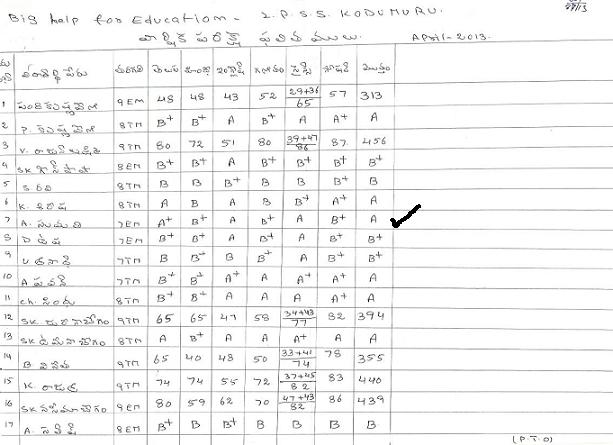 Big help for Education - Z.P.S.S. KODUMURU.
వార్షిక పరీక్ష ఫలితములు. APRIL-2013.
విద్యార్థి పేరు తరగతి తెలుగు హిందీ ఇంగ్లీష్ గణితం సైన్స్ సోషల్ మొత్తం
1 9EM 48 48 43 52 29+36/65 57 313
2 P. కృష్ణవేణి 8TM B+ B+ A B+ A+ A A
3 9TM 80 72 51 80 39+47/86 87 456
4 8EM B+ B+ A B+ B+ B+ B+
5 8TM B B B+ B B B+ B
6 K. శిరీష 8TM A B A B B+ A+ A
7 A. సుమతి 7EM A+ B+ A B+ A B+ A
8 7EM B+ B+ A B+ A B+ B+
9 7TM B B B B+ A B+ B+
10 A 7TM B+ B+ A+ A A+ A+ A
11 Ch. సింధు 8TM B+ B+ A A A A+ A
12 SK. 9TM 65 65 47 58 34+43/77 82 394
13 SK. 8TM A B+ A A A+ A A
14 B 9TM 65 40 48 50 33+41/74 78 355
15 K. 9TM 74 74 55 72 37+45/82 83 440
16 SK. 9EM 80 59 62 70 47+43/82 86 439
17 A. 8EM B+ B+ B B B B B
(P.T.O)